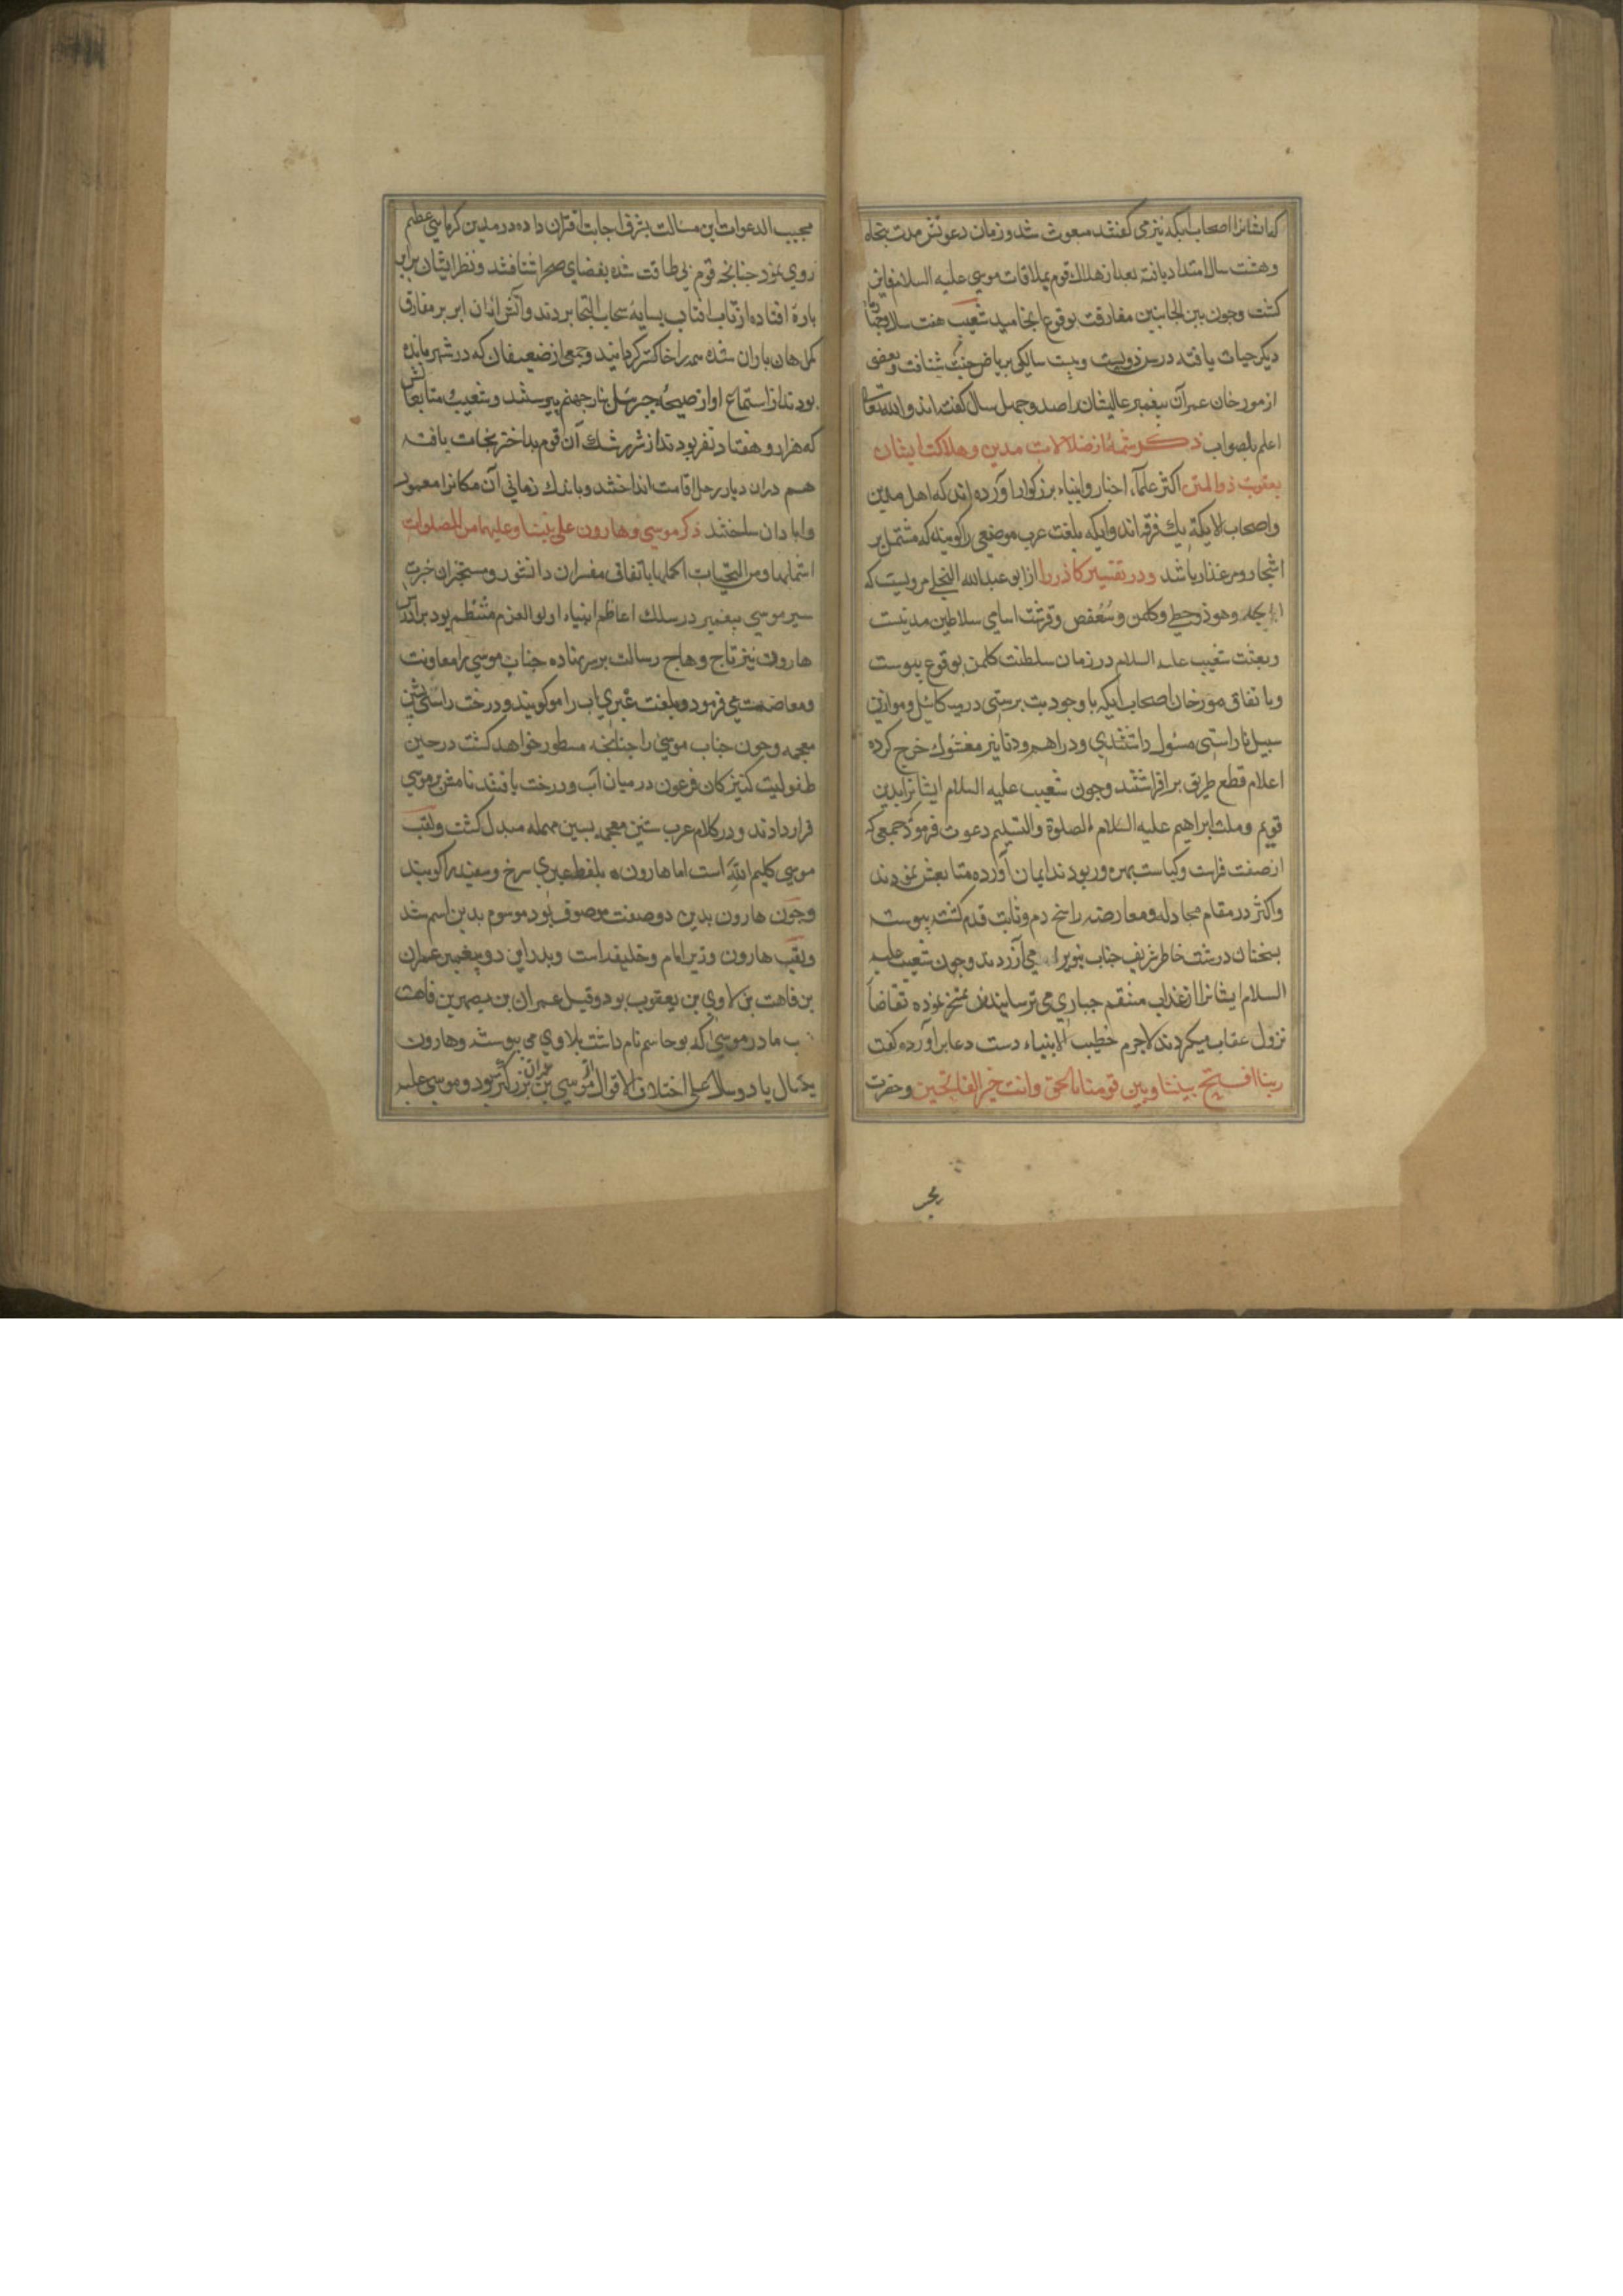 که ایشانرا اصحاب ایکه نیز می کفتند مبعوث شد و زمان دعوتش مدت پنجاه
وهشت سال امتداد یافته بعد از هلاك قوم بملاقات موسی علیه السلام فایز
کشت وجون بین الجانبین مفارقت بوقوع انجامید شعیب هفت سال وجهار
دیکر حیات یافته در سن دویست وبیست سالکی بریاض جنت شتافت وبعضی
از مورخان عمر آن پیغمبر عالیشانرا صد وجهل سال کفته اند والله تعالی
اعلم بالصواب ذکر شمهٔ از ضلالات مدین وهلاکت ایشان
بعقوبت ذو المنن اکثر علماء اخبار وانبیاء بزرکوار آورده اند که اهل مدین
واصحاب الایکة یك فرقه اند وایکه بلغت عرب موضعی راکویند که مشتمل بر
اشجار ومرغزار باشد ودر تفسیر کاذر را از ابو عبدالله البجلی مرویست که
ابجد وهوز وحطی وکلمن وسعفص وقرشت اسامی سلاطین مدینست
وبعثت شعیب علیه السلام در زمان سلطنت کلمن بوقوع پیوست
وباتفاق مورخان اصحاب ایکه باوجود بت پرستی در پیمه کائیل وموازین
سبیل ناراستی مسلوك داشتندی ودراهم ودنانیر مغشوش خرج کرده
اعلام قطع طریق بر افراشتند وجون شعیب علیه السلام ایشانرا بدین
قویم وملت ابراهیم علیه السلام الصلوة والتسلیم دعوت فرمود جمعی که
از صفت فراست وکیاست بهره ور بودند ایمان آورده متابعتش نمودند
واکثر در مقام مجادله ومعارضه راسخ دم وثابت قدم کشته پیوسته
بسخنان درشت خاطر شریف جناب نبویرا می آزردند وجون شعیب علیه
السلام ایشانرا از عذاب منتقم جباری می ترسانیدند تمسخر نموده تقاضا
نزول عقاب میکردند لاجرم خطیب الانبیاء دست دعا بر آورده کفت
ربنا افتح بیننا وبین قومنا بالحق وانت خیر الفاتحین وحضرت
مجیب الدعوات این مسالت بشرف اجابت اقتران داده در مدین کرمایی عظیم
روی نمود جنانجه قوم بی طاقت شده بفضای صحرا شتافتند ونظر ایشان بر ابر
پارهٔ افتاده از تاب افتاب بسایهٔ سحاب التجا بردند وآتش از ان ابر بر مفارق
کمرهان باران شده همه را خاکستر کردانید وجمعی از ضعیفان که در شهر مانده
بودند از استماع اواز صیحهٔ جبرئیل بنار جهنم پیوستند وشعیب با متابعانش
که هزار وهفتاد نفر بودند از شر شرك آن قوم بداختر نجات یافته
هم دران دیار رحل اقامت انداختند وباندك زمانی آن مکانرا معمور
وابادان ساختند ذکر موسی وهارون علی نبینا وعلیهما من الصلوات
اشملها ومن التحیات اکملها باتفاق مفسران دانشور ومستخبران خبرت
سیر موسی پیغمبر در سلك اعاظم انبیاء اولو العزم منتظم بود برادرش
هارون نیز تاج وهاج رسالت بر سر نهاده جناب موسی را معاونت
ومعاضدت می فرمود وبلغت عبری اب را مو کویند ودرخت را شی بشین
معجمه وجون جناب موسی را جنانجه مسطور خواهد کشت در حین
طفولیت کنیزکان فرعون در میان آب ودرخت یافتند نامش بر موشی
قرار دادند ودر کلام عرب شین معجمه بسین مهمله مبدل کشت ولقب
موسی کلیم الله است اما هارون بلفظ عبری سرخ وسفید را کویند
وجون هارون بدین دو صفت موصوف بود موسوم بدین اسم شد
ولقب هارون وزیر امام وخلیفه است وپدر این دو پیغمبر عمران
بن قاهت بن لاوی بن یعقوب بود وقیل عمران بن یصهر بن قاهت
مادر موسی که یوحاسم نام داشت بلاوی می پیوست وهارون
یکسال یا دو سال علی اختلاف الاقوال از موسی بن عمران بزرکتر بود وموسی علیه
بحر